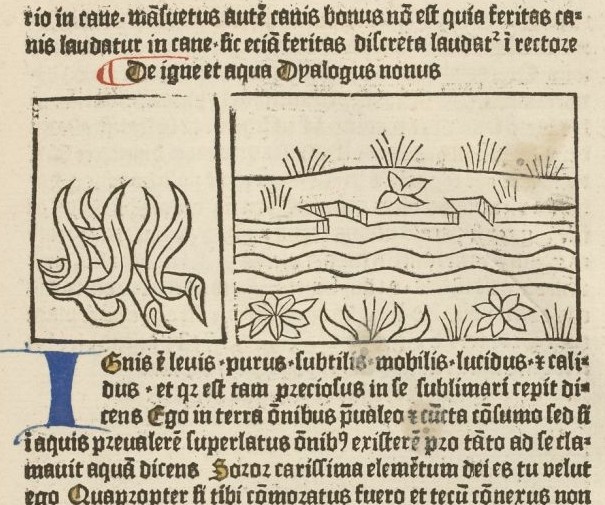 rio in cane. mãsuetus autẽ canis bonus nõ est quia feritas ca=
nis laudatur in cane. sic eciã feritas discreta laudatᷣ ĩ rectore
De igne et aqua Dyalogus nonus
IGnis ẽ levis . purus . subtilis . mobilis . lucidus . ⁊ cali=
dus . et qꝛ est tam preciosus in se sublimari cepit di=
cens Ego in terra õnibus p̄ualeo ⁊ cũcta cõsumo sed si
ĩ aquis preualerẽ superlatus õnibꝰ existerẽ pro tãto ad se cla=
mauit aquã dicens Soror carissima elemẽtum dei es tu velut
ego Quapropter si tibi cõmoratus fuero et tecũ cõnexus non